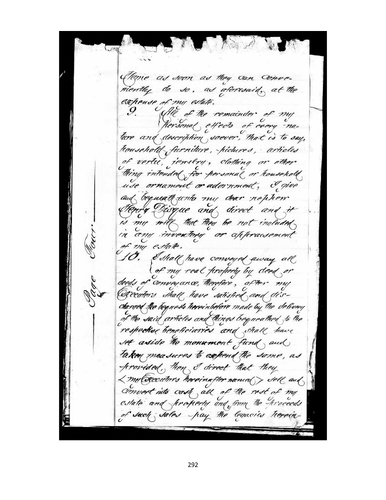 Home as soon as they can conve-
niently do so, as aforesaid, at the
expense of my estate.
9. All of the remainder of my
personal effects of every na-
ture and description soever, that is to say,
household furniture, pictures, articles
of vertu, jewelry, clothing or other
thing intended for personal or household
use ornament or adornment, I give
and bequeath unto my dear nephew
Henry and direct and it
is my will that they be not included
in any inventory or appraisement
of my estate.
10. I shall have conveyed away all
of my real property by deed or
deeds of conveyance, therefore, after my
Executors shall have satisfied and dis-
charged the bequests hereinbefore made by the delivery
of the said articles and things bequeathed to the
respective beneficiaries and shall have
set aside the monument fund and
taken measures to expend the same, as
provided, then I direct that they
<my Executors hereinafter named> sell and
convert into cash all of the rest of my
estate and property and from the proceeds
of such sales pay the legacies herein-
Page Four.
292